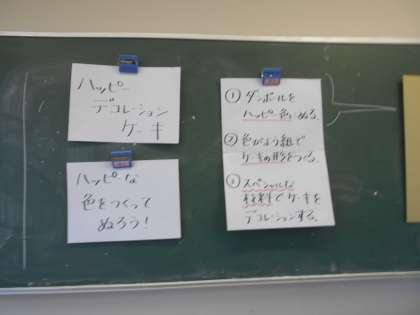 ハッピー
デコレーション
ケーキ
ハッピーな
色をつくって
ぬろう!
① ダンボールを
ハッピー色にぬる。
② 色がよう紙で
ケーキの形をつくる。
③ スペシャルな
材料でケーキを
デコレーションする。